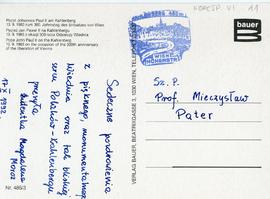 KORESP. VI 11
Papst Johannes Paul II am Kahlenberg
13. 9. 1983 zum 300. Jahrestag des Entsatzes von Wien
Papież Jan Paweł II na Kahlenbergu
13. 9. 1983 z okazji 300-lecia Odsieczy Wiednia
Pope John Paul II on the Kahlenberg
13. 9. 1983 on the occasion of the 300th anniversary
of the liberation of Vienna
bauer
WIENER
HÖHENSTR.
Serdeczne pozdrowienia
z pięknego, monumentalnego
Wiednia oraz tak bliskiego
sercu Polaków - Kahlenbergu
przesyła
Magdalena
1992
Nr. 486/3
VERLAG BAUER, BEATRIXGASSE 3, 1030 WIEN, TELEFON
Sz. P.
Prof. Mieczysław
Pater